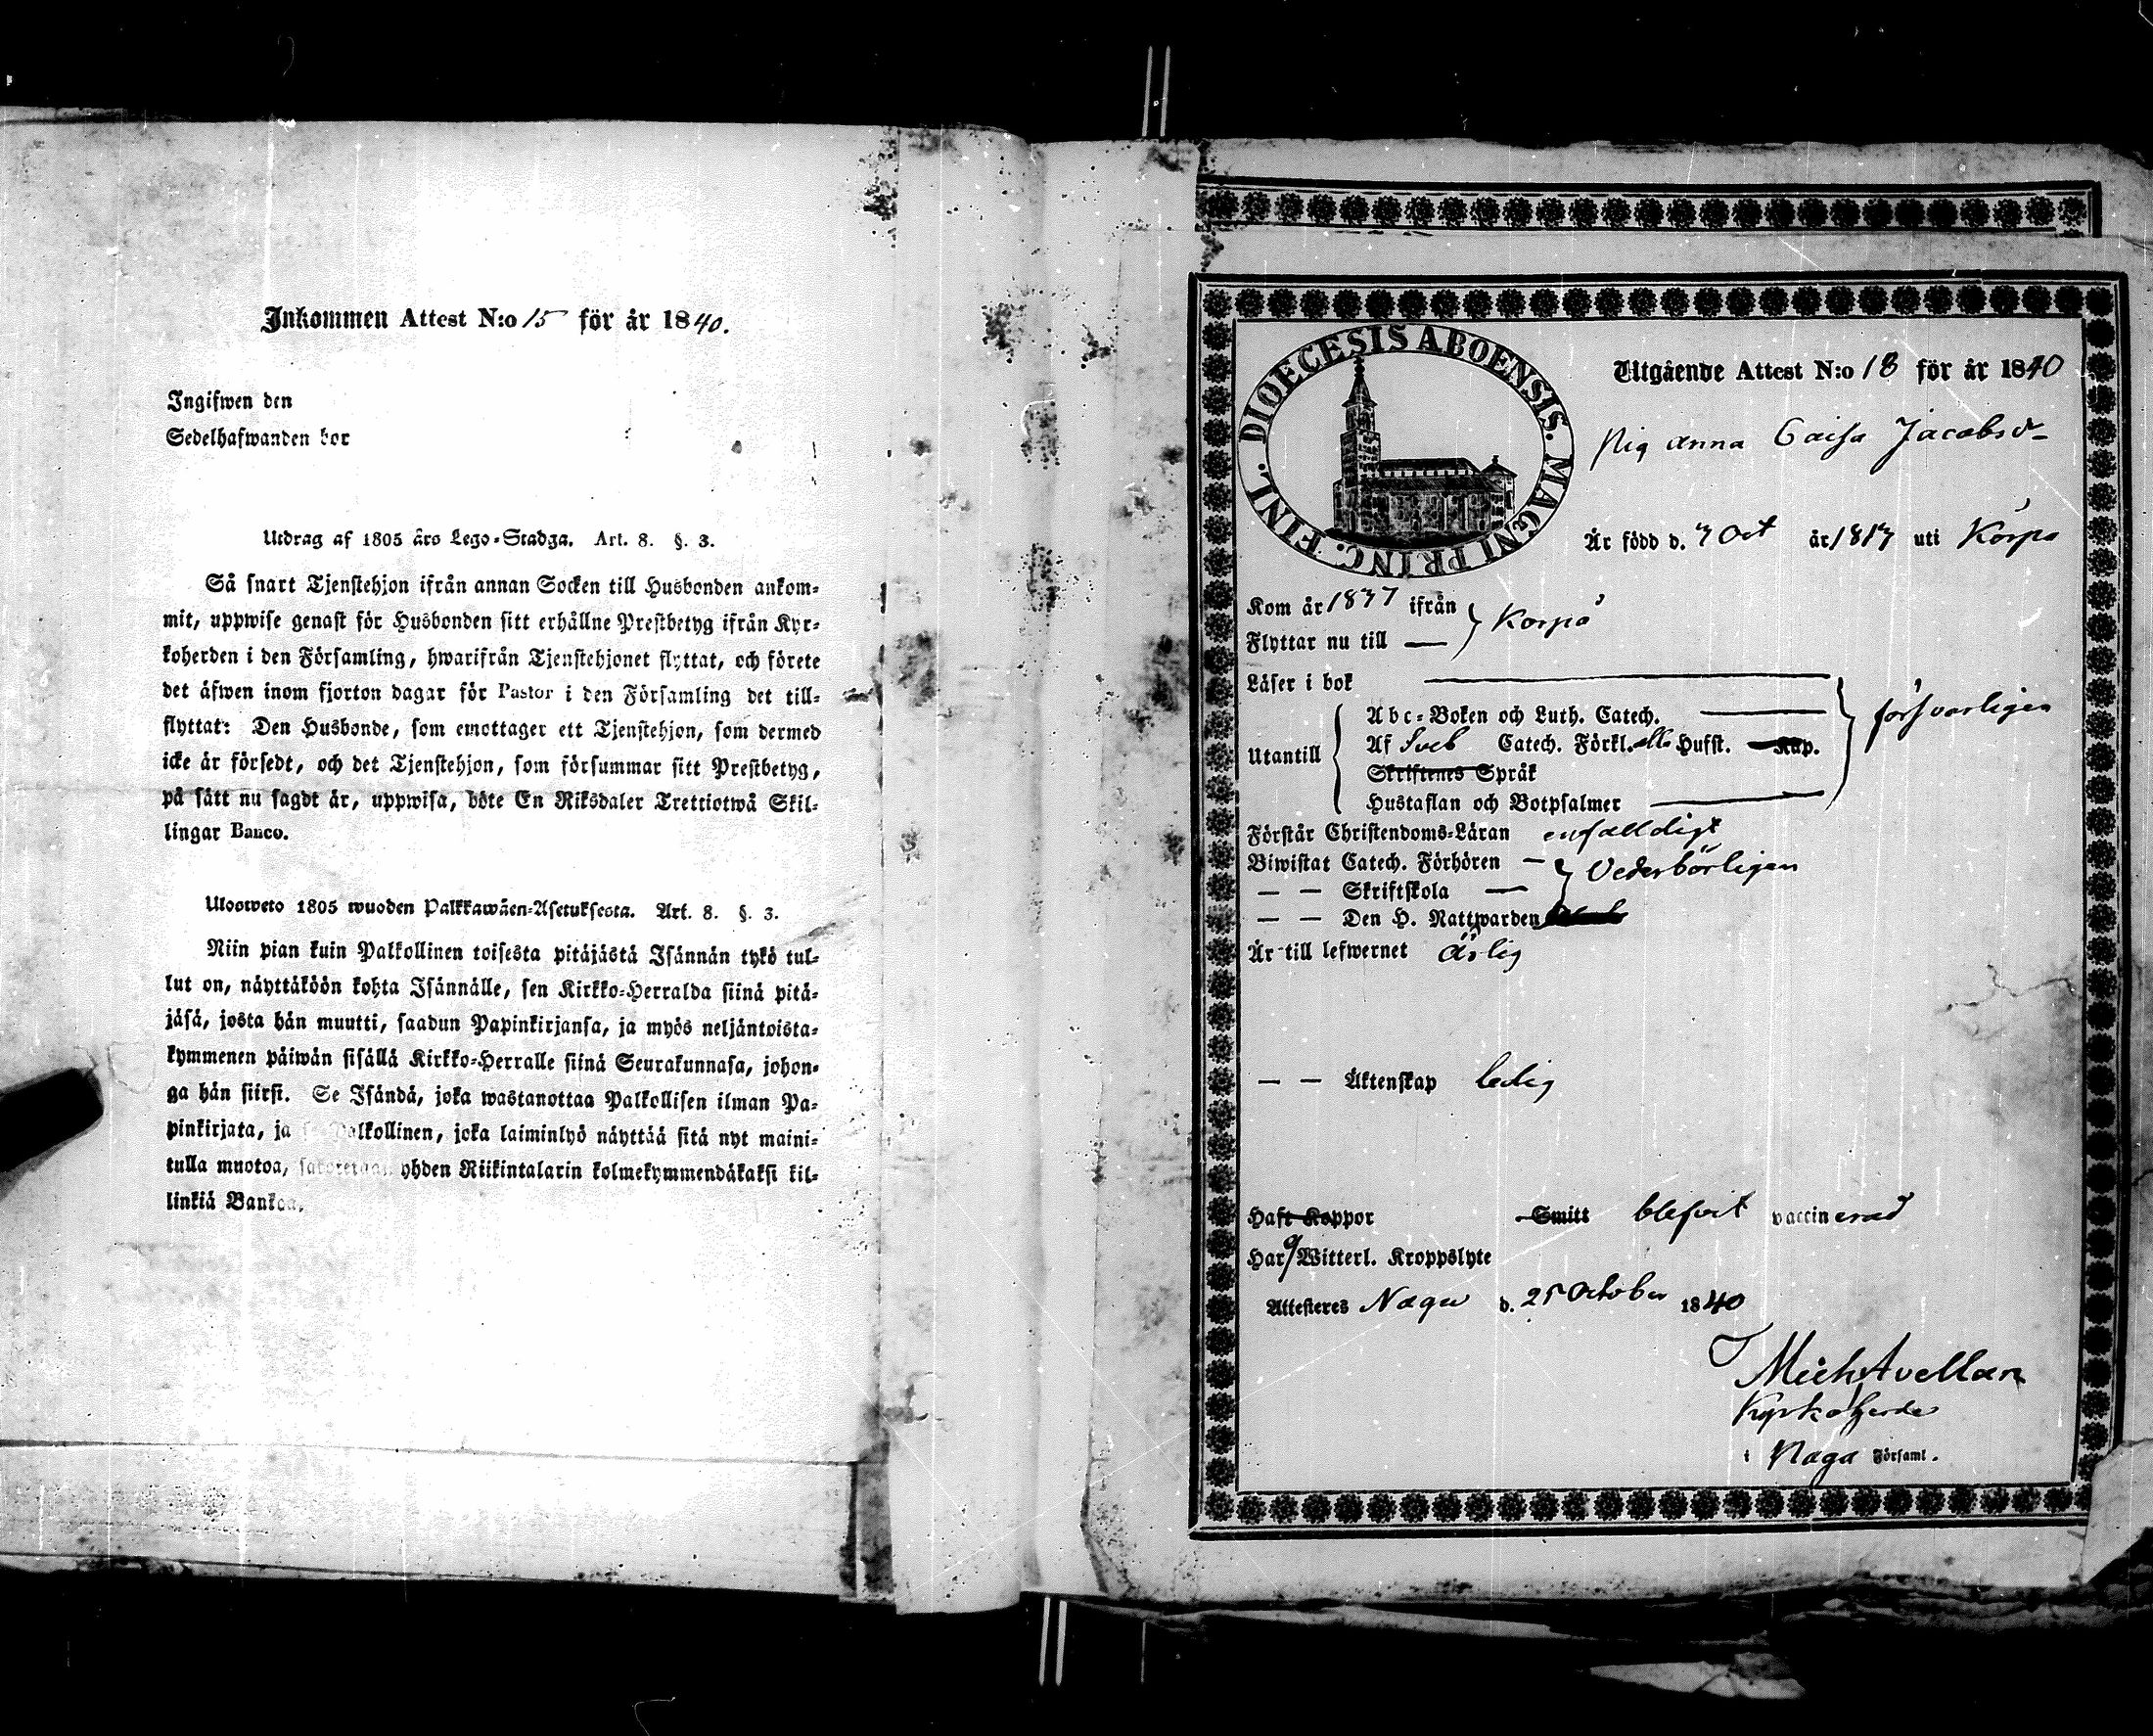 Inkommen Attest N:o 15 för år 1840.
Ingifwen den
Sedelhafwanden bor
Utdrag af 1805 års Lego-Stadga. Art. 8. §. 3.
Så snart Tjenstehjon ifrån annan Socken till Husbonden ankom-
mit, uppwise genast för Husbonden sitt erhållne Prestbetyg ifrån Kyr-
koherden i den Församling, hwarifrån Tjenstehjonet flyttat, och förete
det äfwen inom fjorton dagar för Pastor i den Församling det till-
flyttat: Den Husbonde, som emottager ett Tjenstehjon, som dermed
icke är försedt, och det Tjenstehjon, som försummar sitt Prestbetyg,
på sätt nu sagdt är, uppwisa, böte En Riksdaler Trettiotwå Skil-
lingar Banco.
Ulosweto 1805 wuoden Palkkawäen-Asetuksesta. Art. 8. §. 3.
Niin pian kuin Palkollinen toisesta pitäjästä Isännän tykö tul-
lut on, näyttäköön kohta Isännälle, sen Kirkko-Herralda siinä pitä-
jäsä, josta hän muutti, saadun Papinkirjansa, ja myös neljäntoista-
kymmenen päiwän sisällä Kirkko-Herralle siinä Seurakunnasa, johon-
ga hän siirsi. Se Isändä, joka wastanottaa Palkollisen ilman Pa-
pinkirjata, ja se Palkollinen, joka laiminlyö näyttää sitä nyt maini-
tulla muotoa, yhden Riikintalarin kolmekymmendäkaksi kil-
linkiä Bankoa.
DIOECESIS ABOENSIS. MAGNI PRINC. FINL.
Utgående Attest N:o 18 för år 1840
Pig Anna Caisa Jacobsd-
Är född d. 7 Oct år 1817 uti Korpo
Kom år 1837 ifrån
Flyttar nu till — } Korpo
Läser i bok
Utantill { Abc-Boken och Luth. Catech.
Af Sveb Catech. Förkl. alla Hufst. Kap.
Skriftenes Språk
Hustaflan och Botpsalmer
} försvarligen
Förstår Christendoms-Läran enfalldigt
Biwistat Catech. Förhören —
— — Skriftskola — } Vederbörligen
— — Den H. Nattwarden
Är till lefwernet ärlig
— — Äktenskap ledig
Haft Koppor Smitt blifvit vaccinerad
Har Witterl. Kroppslyte
Attesteres Nagu d. 25 October 1840
Mich Avellan
Kyrkoherde
i Nagu Församl.